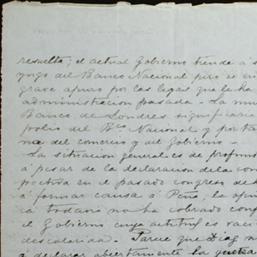 resuelto; el actual Gobierno tiende a s
yugo del Banco Nacional pero se en
grave apuro por los legal que le ha
administracion pasada - La mu
Banco de Londres significaria
polio del Bco Nacional y por ta
na del comercio y del Gobierno -
- La situacion general es de profun
á pesar de la declaracion de la con
pectiva en el pasado congreso de
á formar causa á Peña, la opin
ra todavia no ha cobrado con
el Gobierno cuya actitud es vaci
descolorida. Parece que Diaz n
á declarar abiertamente la guerra